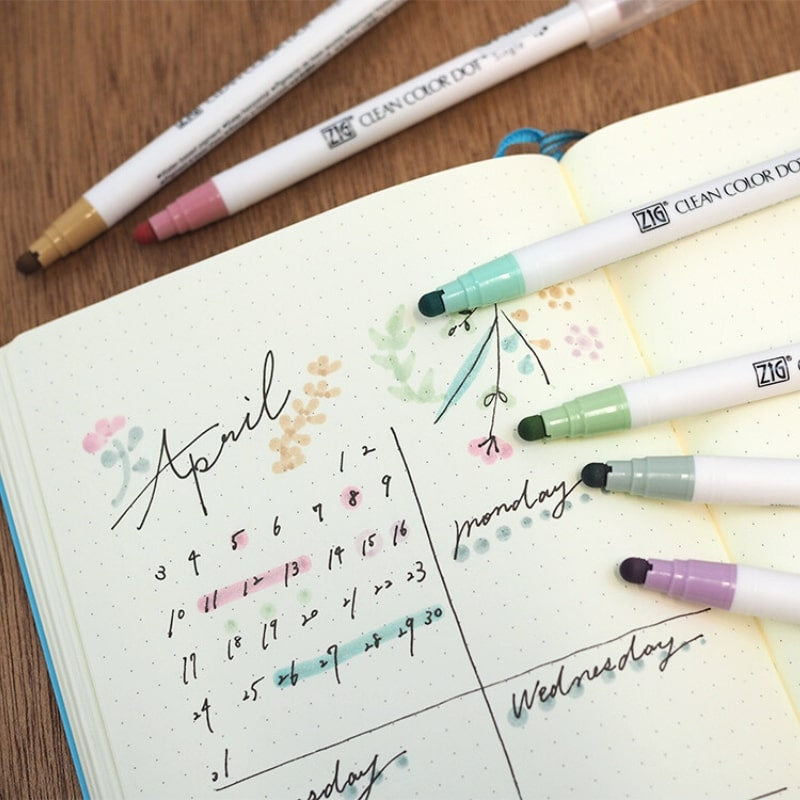 ZIG CLEAN COLOR DOT™ Single
ZIG® CLEAN COLOR DOT
ZIG
April
1 2
3 4 5 6 7 8 9
10 11 12 13 14 15 16
17 18 19 20 21 22 23
24 25 26 27 28 29 30
31
monday
Wednesday
sday